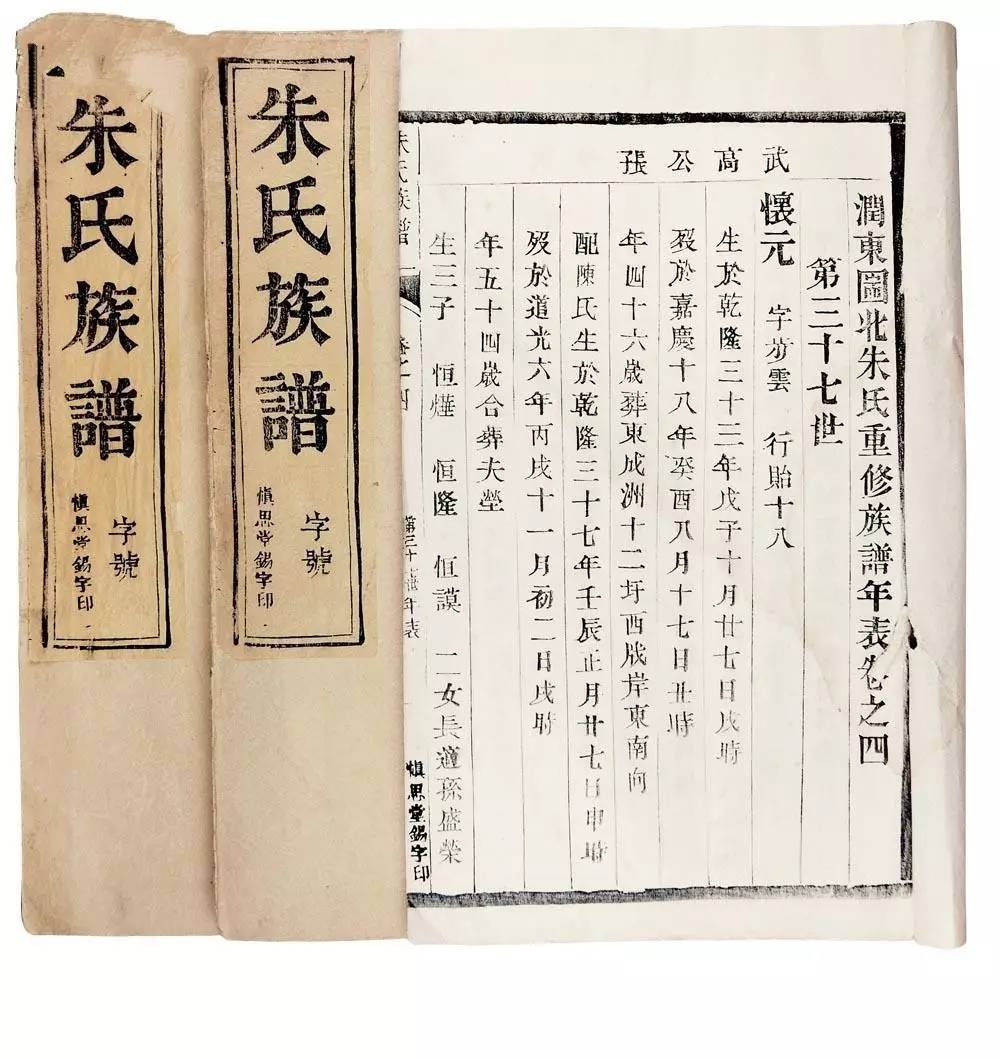 潤東圌北朱氏重修族譜年表卷之四
第三十七世
武高公張
懷元 字芳雲 行貽十八
生於乾隆三十三年戊子十月廿七日戌時
歿於嘉慶十八年癸酉八月十七日丑時
年四十六歲葬東成洲十二圩西戗岸東南向
配陳氏生於乾隆三十七年壬辰正月廿七日申時
歿於道光六年丙戌十一月初二日戌時
年五十四歲合葬夫塋
生三子 恒燁 恒隆 恒謨 二女長適孫盛榮
朱氏族譜
卷之四
第三十七世年表
愼思堂錫字印
朱氏族譜
字號
愼思堂錫字印
朱氏族譜
字號
愼思堂錫字印